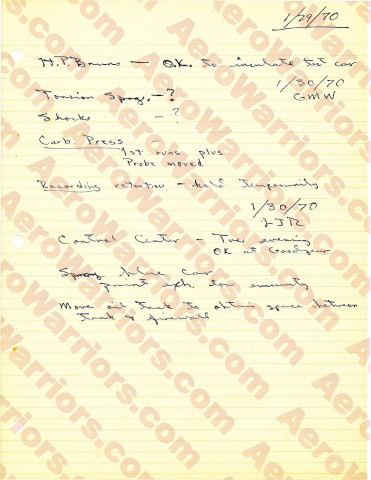 1/29/70
H.P. Bruns - O.K. to insulate test car
1/30/70
GMW
Torsion Spgs. - ?
Shocks - ?
Carb Press
1st runs plus
Probe moved
Recording retention - hold temporarily
1/30/70
LJR
Control Center - Tues evening
OK at Goodyear
Spray blue car
paint exh. low emissivity
Move oil tank to obtain space between
tank & firewall
AeroWarriors.com